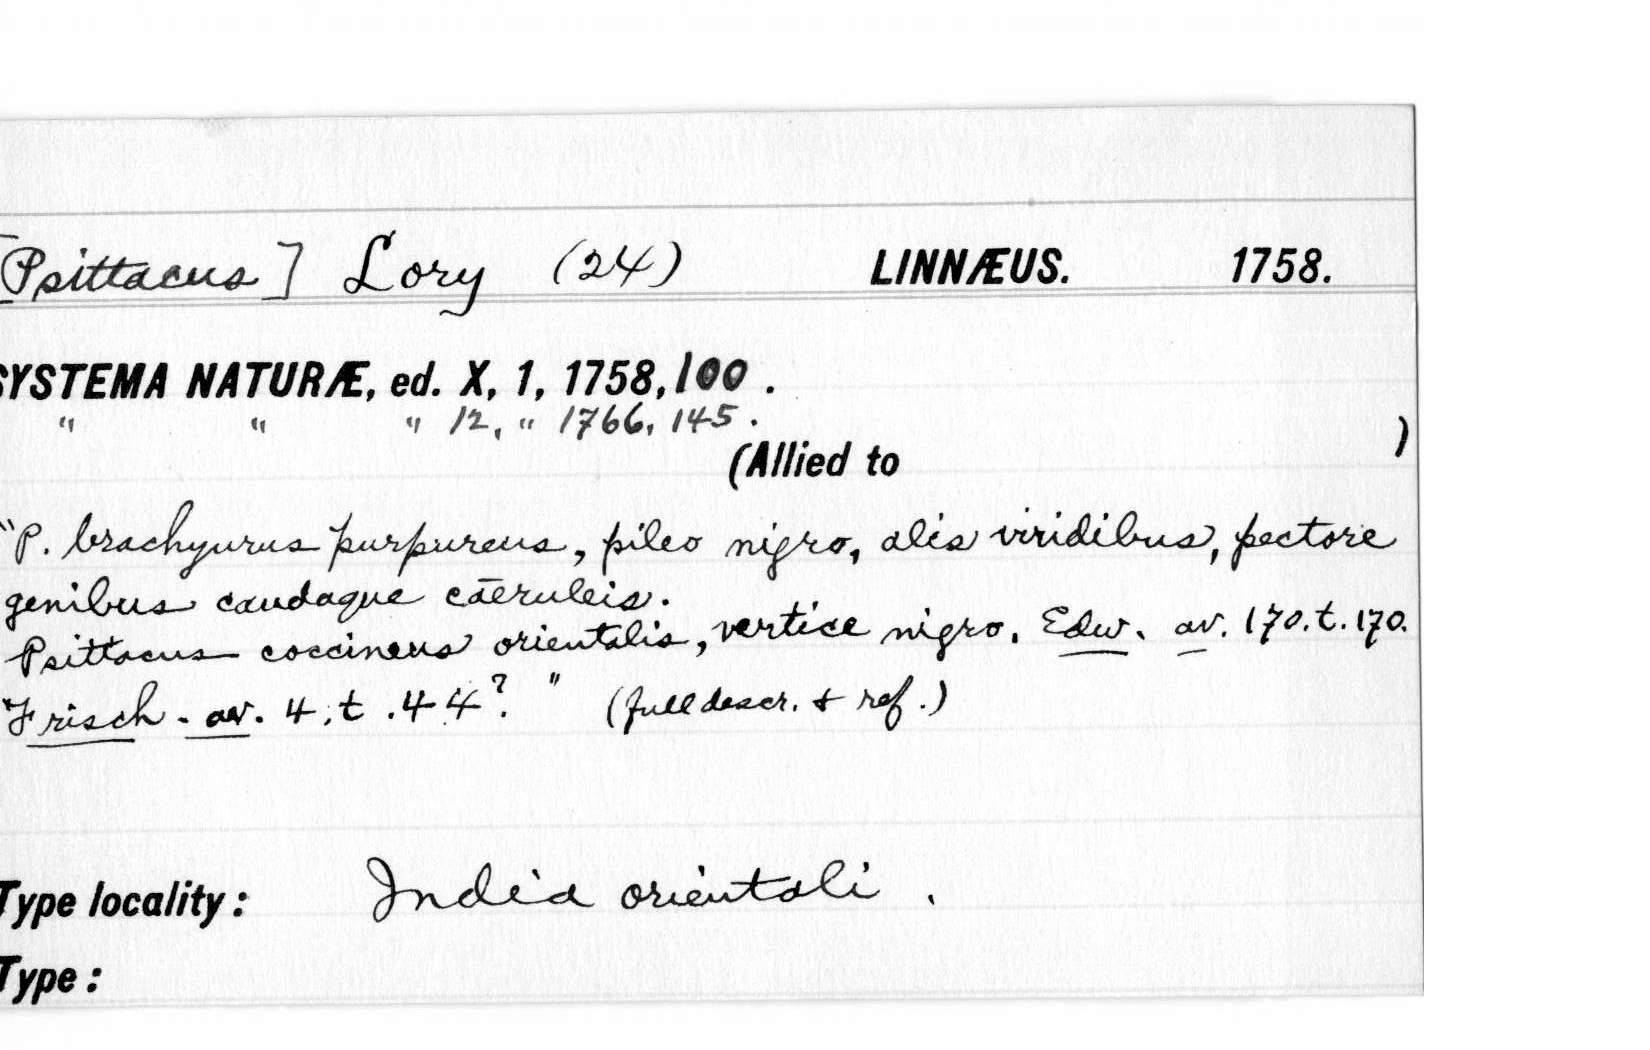 [Psittacus] Lory (24) LINNÆUS. 1758.
SYSTEMA NATURÆ, ed. X, 1, 1758, 100.
" " " 12, " 1766, 145.
(Allied to )
"P. brachyurus purpureus, pileo nigro, alis viridibus, pectore
genibus caudaque caeruleis.
Psittacus coccineus orientalis, vertice nigro. Edw. av. 170. t. 170.
"Frisch. av. 4. t. 44?" (full descr. & ref.)
Type locality: India orientali.
Type: